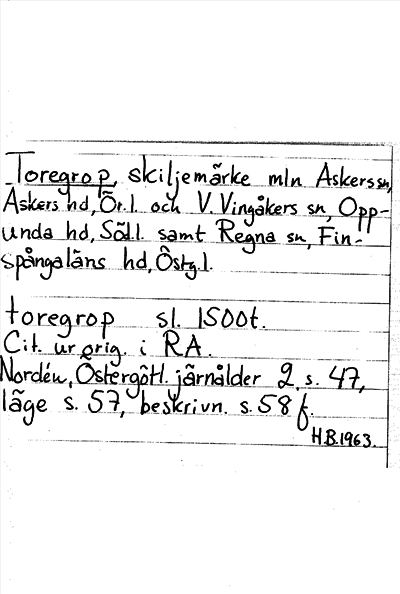 Toregrop, skiljemärke mln Askers sn,
Askers hd, Ör.l. och V. Vingåkers sn, Opp-
unda hd, Södl. samt Regna sn, Fin-
spångaläns hd, Östg.l.
toregrop sl. 1500t.
Cit. ur orig. i RA.
Nordén, Östergötl. järnålder 2, s. 47,
läge s. 57, beskrivn. s. 58 f.
H.B. 1963.